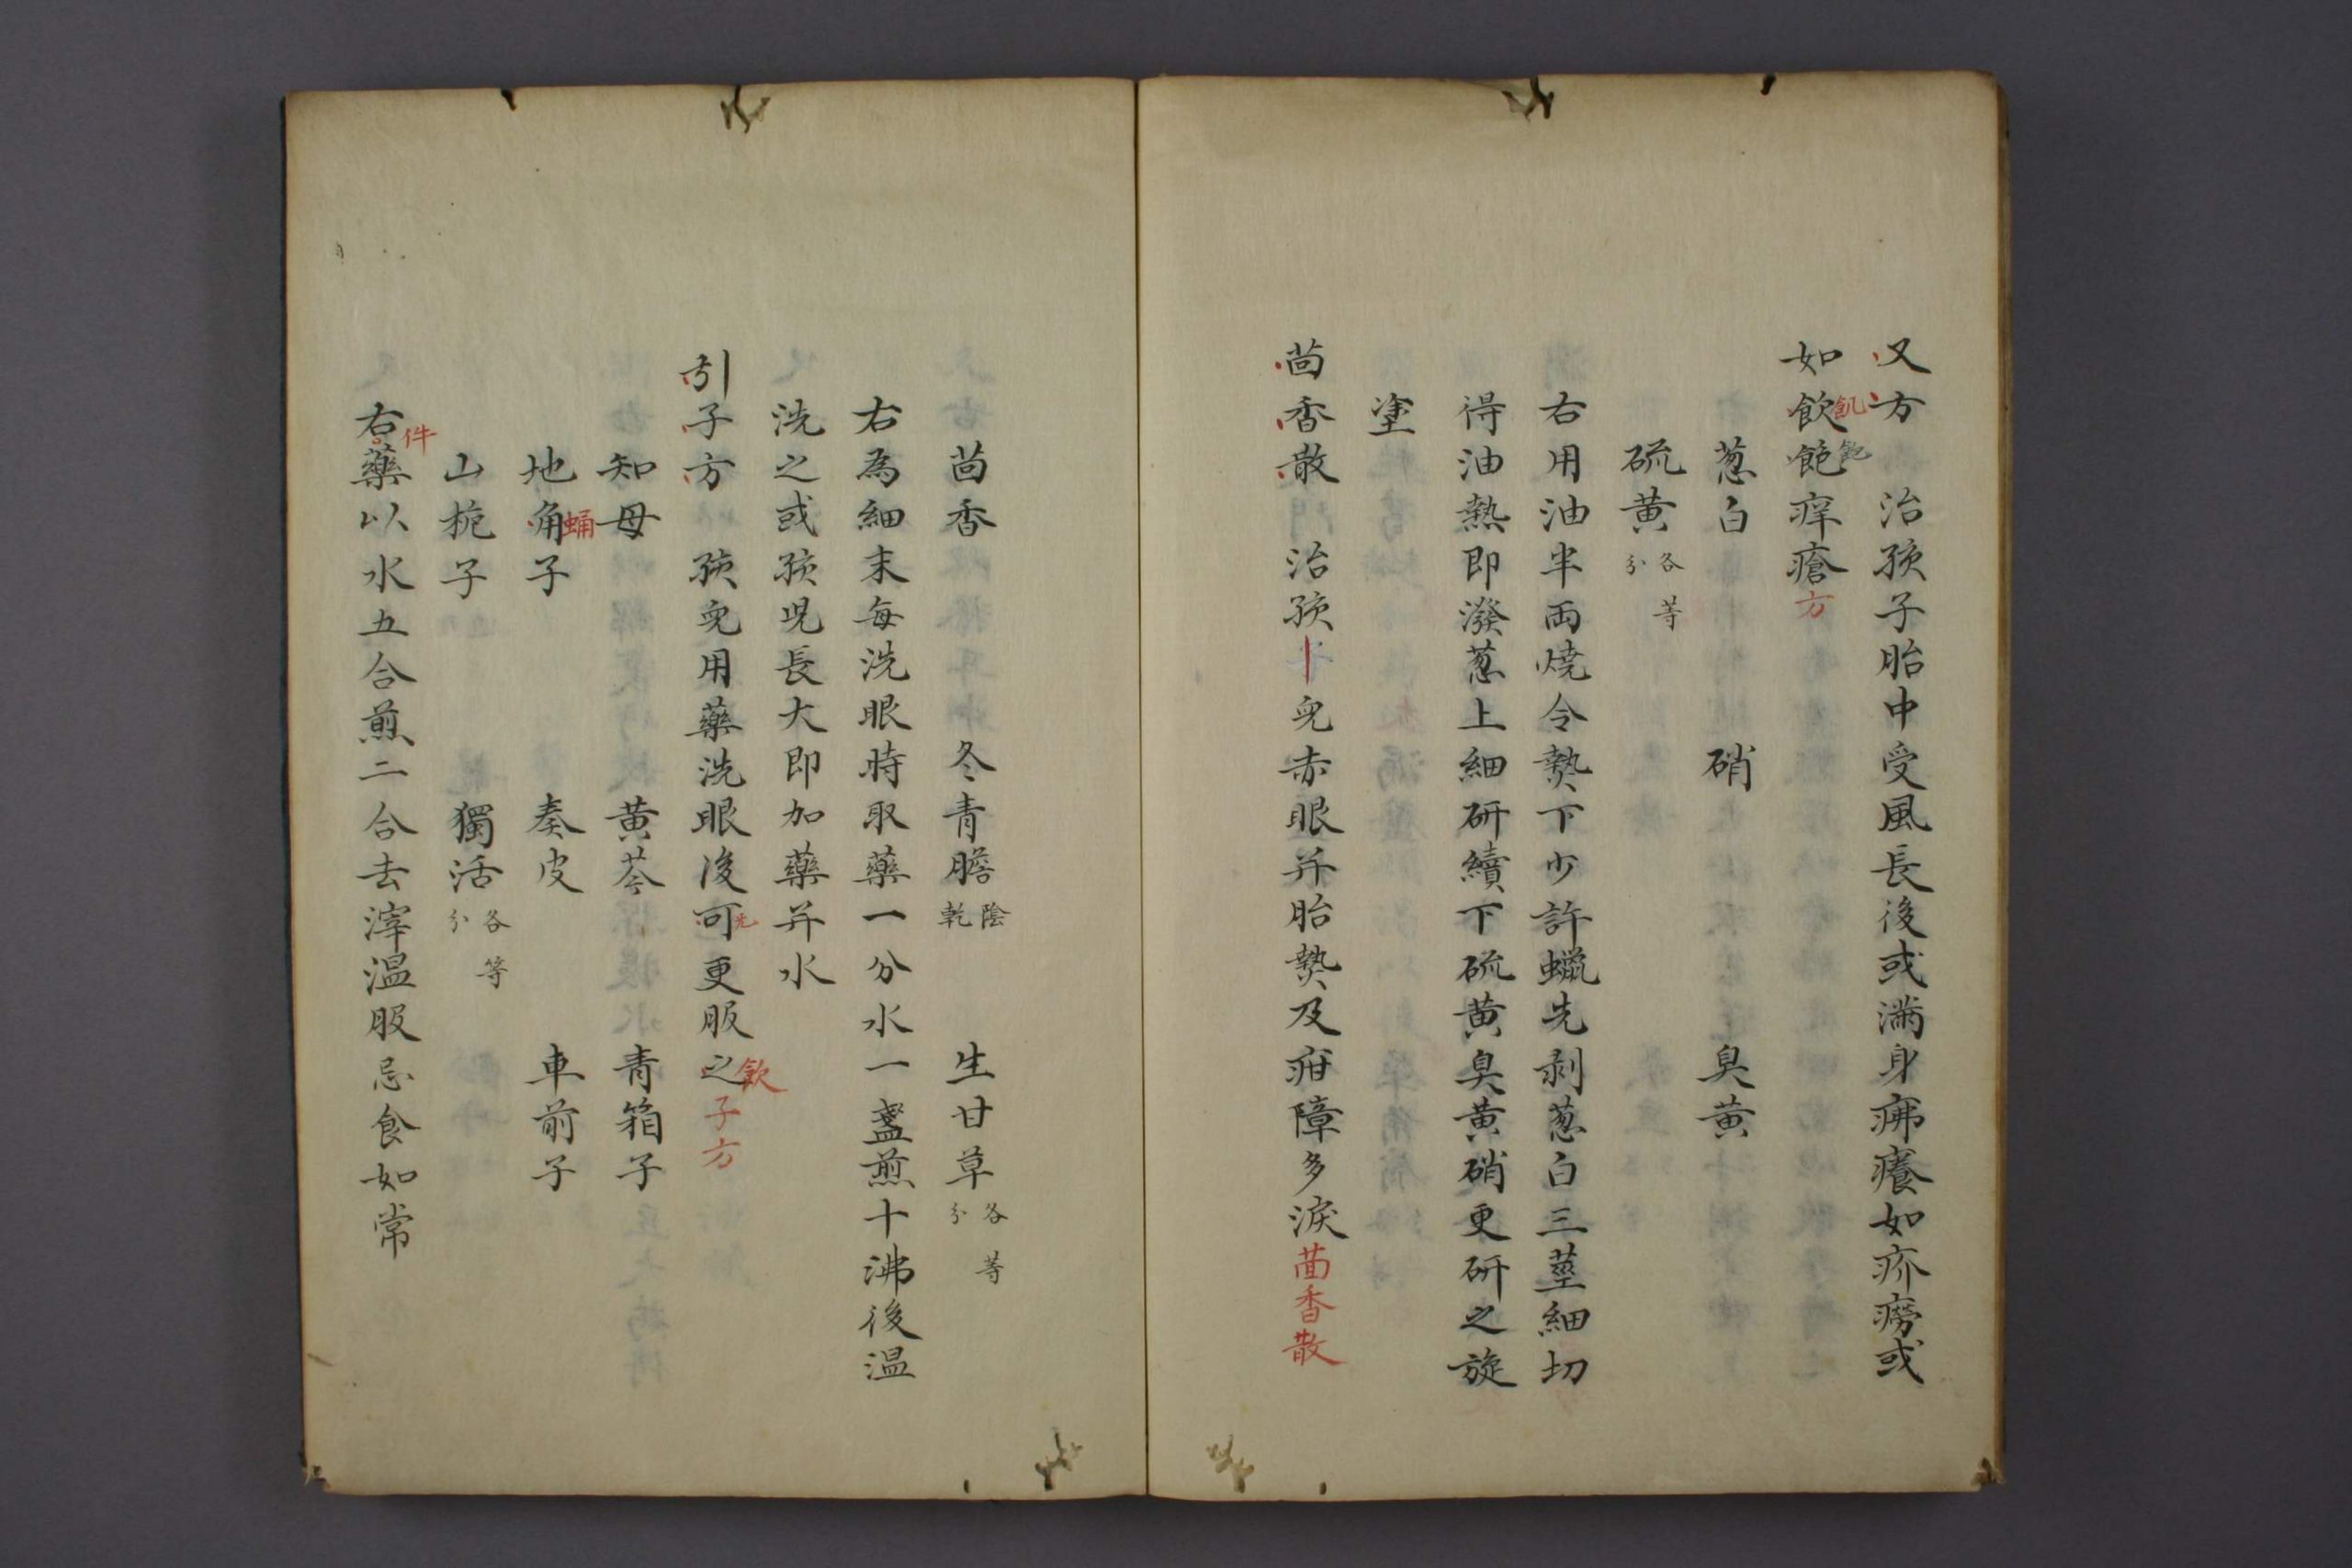 又方　治孩子胎中受風長後或滿身疿癢如疥癆或
如飲飽痒瘡方
飢
飽
葱白　硝　臭黄
硫黄各等分
右用油半兩燒令熱下少許蠟先剥葱白三莖細切
得油熱即潑葱上細研續下硫黄臭黄硝更研之旋
塗
茴香散　治孩兒赤眼并胎熱及疳障多淚茴香散
茴香　冬青膽陰乾　生甘草各等分
右為細末每洗眼時取藥一分水一盞煎十沸後温
洗之或孩児長大即加藥并水
引子方　孩兒用藥洗眼後可更服之子方
先
飲
知母　黄芩　青箱子
地角子　秦皮　車前子
蛹
山梔子　獨活各等分
右藥以水五合煎二合去滓温服忌食如常
件